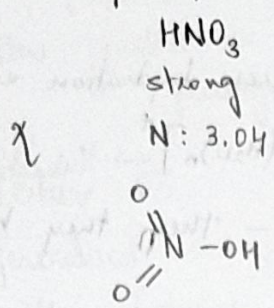 HNO₃
strong
χ N: 3.04
O
N-OH
O